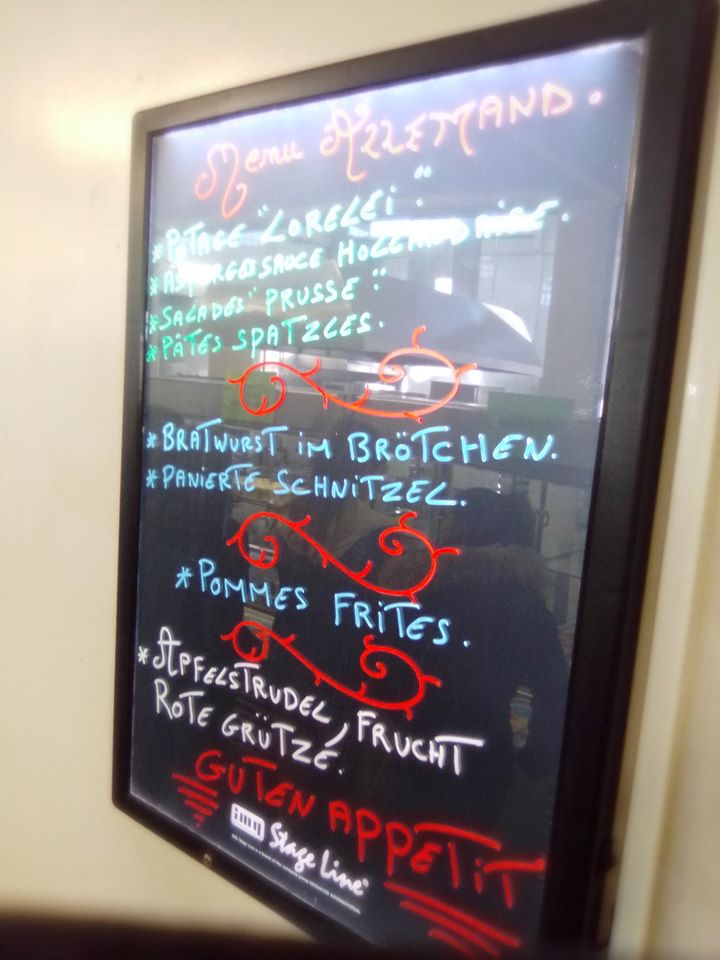 Menu ALLEMAND.
*POTAGE "LORELEI".
*ASPERGES SAUCE HOLLANDAISE.
*SALADES "PRUSSE"
*PÂTES SPATZLES.
*BRATWURST IM BRÖTCHEN.
*PANIERTE SCHNITZEL.
*POMMES FRITES.
*APFELSTRUDEL, FRUCHT
ROTE GRÜTZÉ.
GUTEN APPETIT
img Stage Line